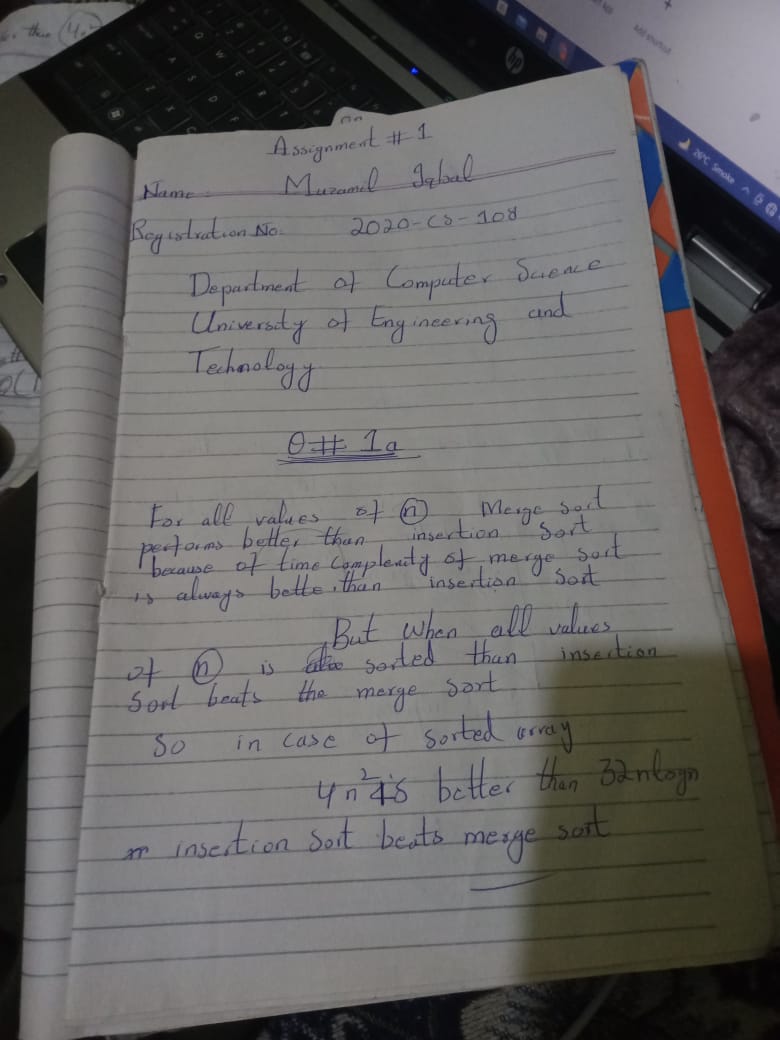 Assignment # 1
Name: Muzamil Iqbal
Registration No. 2020-CS-108
Department of Computer Science
University of Engineering and
Technology
Q# 1a
For all values of n Merge sort
performs better than insertion Sort
because of time Complexity of merge sort
is always better than insertion Sort
But when all values
of n is sorted than insertion
Sort beats the merge sort
So in case of sorted array
4n² is better than 32nlogn
insertion sort beats merge sort
hp
Add shortcut
26°C Smoke